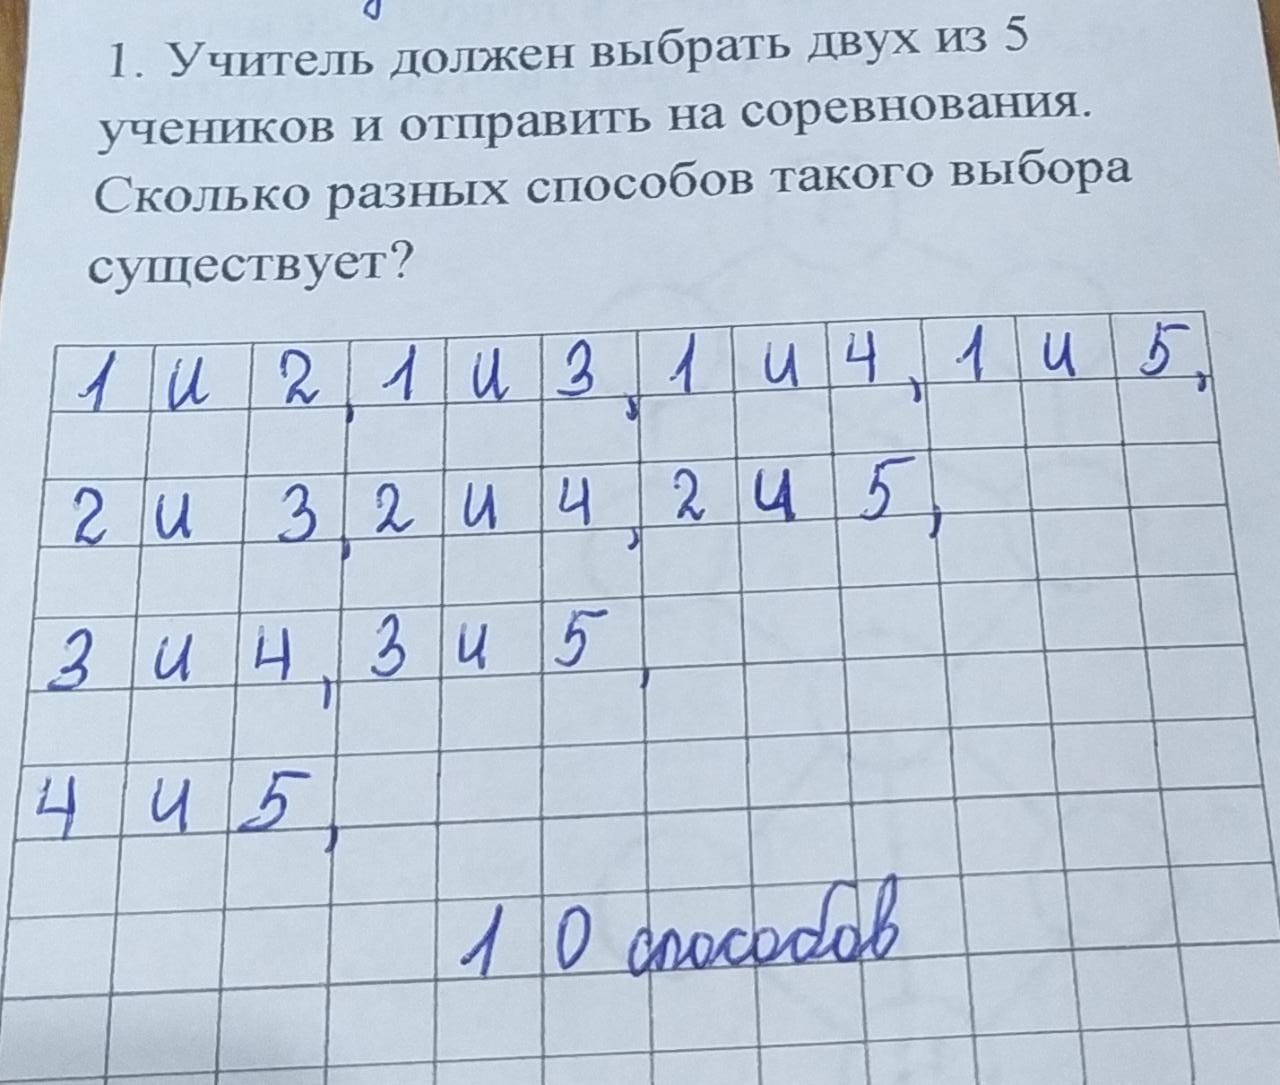 1. Учитель должен выбрать двух из 5
учеников и отправить на соревнования.
Сколько разных способов такого выбора
существует?
1 и 2, 1 и 3, 1 и 4, 1 и 5,
2 и 3, 2 и 4, 2 и 5,
3 и 4, 3 и 5,
4 и 5,
10 способов